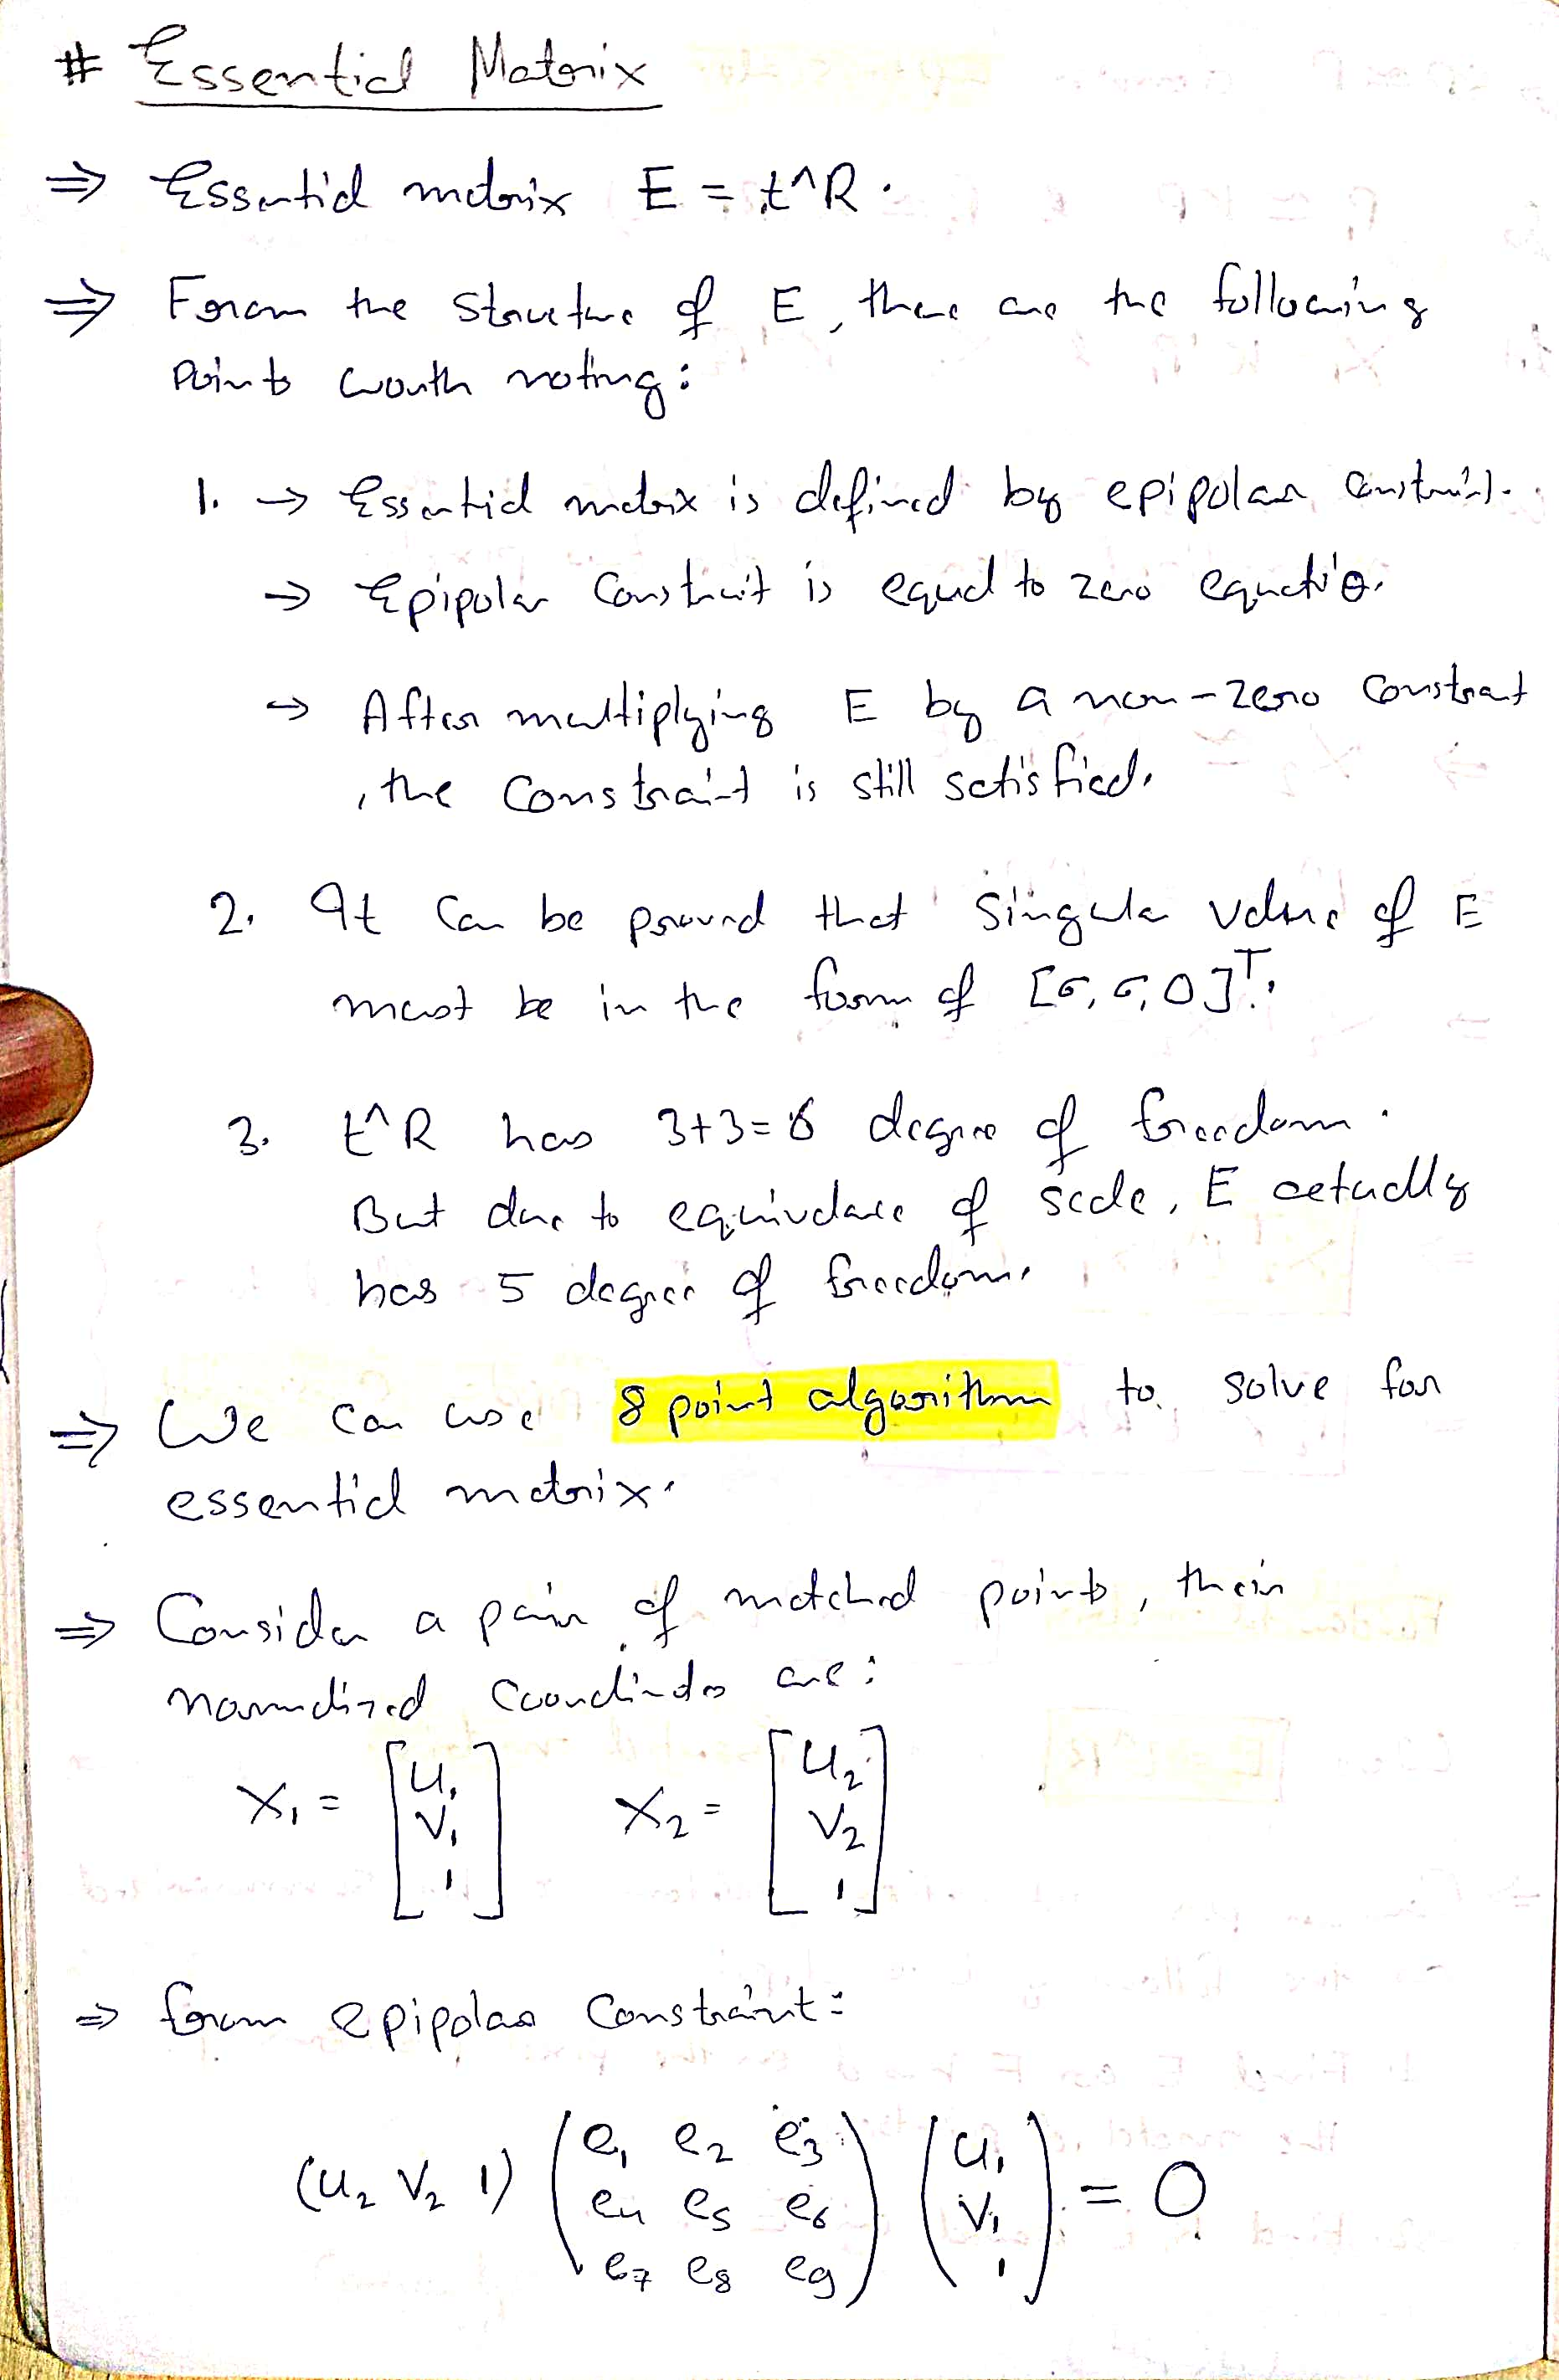 # Essential Matrix
⇒ Essential matrix E = t^R.
⇒ From the structure of E, there are the following
points worth noting:
1. → Essential matrix is defined by epipolar constraint.
→ Epipolar Constraint is equal to zero equation.
→ After multiplying E by a non-zero constant
, the constraint is still satisfied.
2. It can be proved that singular value of E
must be in the form of [σ, σ, 0]ᵀ.
3. t^R has 3+3=6 degree of freedom.
But due to equivalence of scale, E actually
has 5 degree of freedom.
⇒ We can use 8 point algorithm to solve for
essential matrix.
⇒ Consider a pair of matched points, their
normalized coordinates are:
X₁ = [u₁ v₁ 1] X₂ = [u₂ v₂ 1]
⇒ from epipolar constraint:
(u₂ v₂ 1) (e₁ e₂ e₃
e₄ e₅ e₆
e₇ e₈ e₉) (u₁ v₁ 1) = 0